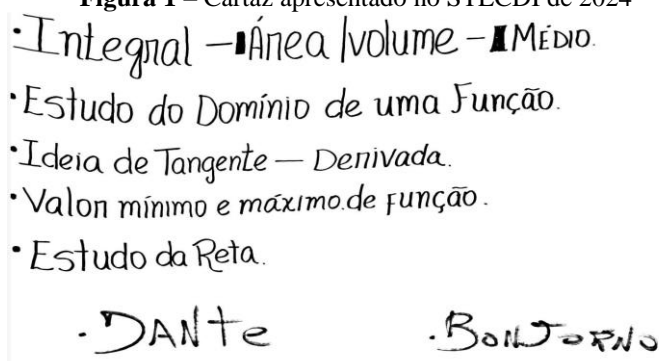 Figura 1 – Cartaz apresentado no STECDI de 2024
• Integral – Área / volume – MÉDIO.
• Estudo do Domínio de uma Função.
• Ideia de Tangente — Derivada.
• Valor mínimo e máximo.de função.
• Estudo da Reta.
. DANTE . BONJORNO